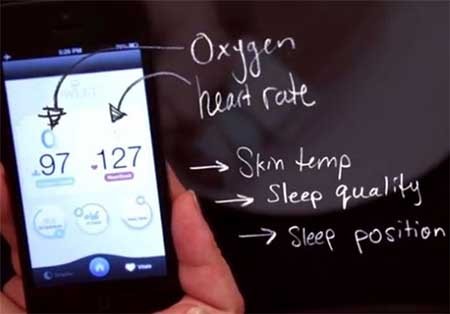 5:26 PM
Oxygen
heart rate
97
127
→ Skin temp
→ Sleep quality
→ Sleep position